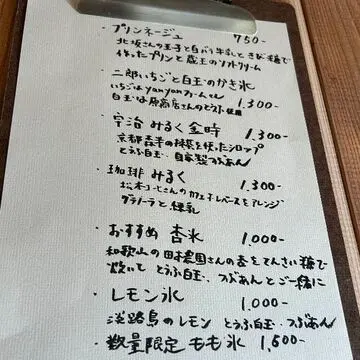 ・プリンネージュ 750-
北坂さんの玉子と白バラ牛乳ときび糖で
作ったプリンと蔵王のソフトクリーム
・二郎いちごと白玉のかき氷
いちごはyanyanファームさん 1,300-
白玉は原商店さんのとうふ使用
・宇治みるく金時 1,300-
京都 の抹茶を使ったシロップ
とうふ白玉、自家製つぶあん
・珈琲みるく 1,300-
さんのカフェオレベースをアレンジ
グラノーラと練乳
・おすすめ 杏氷 1,000-
和歌山の田村農園さんの杏をてんさい糖で
炊いて とうふ白玉、つぶあんとご一緒に
・レモン氷 1,000-
淡路島のレモン とうふ白玉、つぶあん
・数量限定 もも氷 1,500-